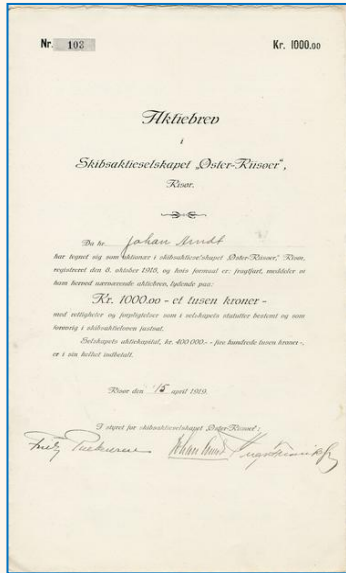 Nr. 103
Kr. 1000.00
Aktiebrev
i
Skibsaktieselskapet „Øster-Riisøer",
Risør.
Da hr. Johan Arndt
har tegnet sig som aktionær i skibsaktieselskapet Øster-Riisøer, Risør,
registreret den 8. oktober 1918, og hvis formaal er: fragtfart, meddeles at
ham herved nærværende aktiebrev, lydende paa:
Kr. 1000.00 - et tusen kroner -
med rettigheter og forpligtelser som i selskapets statutter bestemt og som
forøvrig i skibsaktieloven fastsat.
Selskapets aktiekapital, kr. 400 000.- fire hundrede tusen kroner-,
er i sin helhet indbetalt.
Risør den 15 april 1919.
I styret for skibsaktieselskapet Øster-Riisøer: